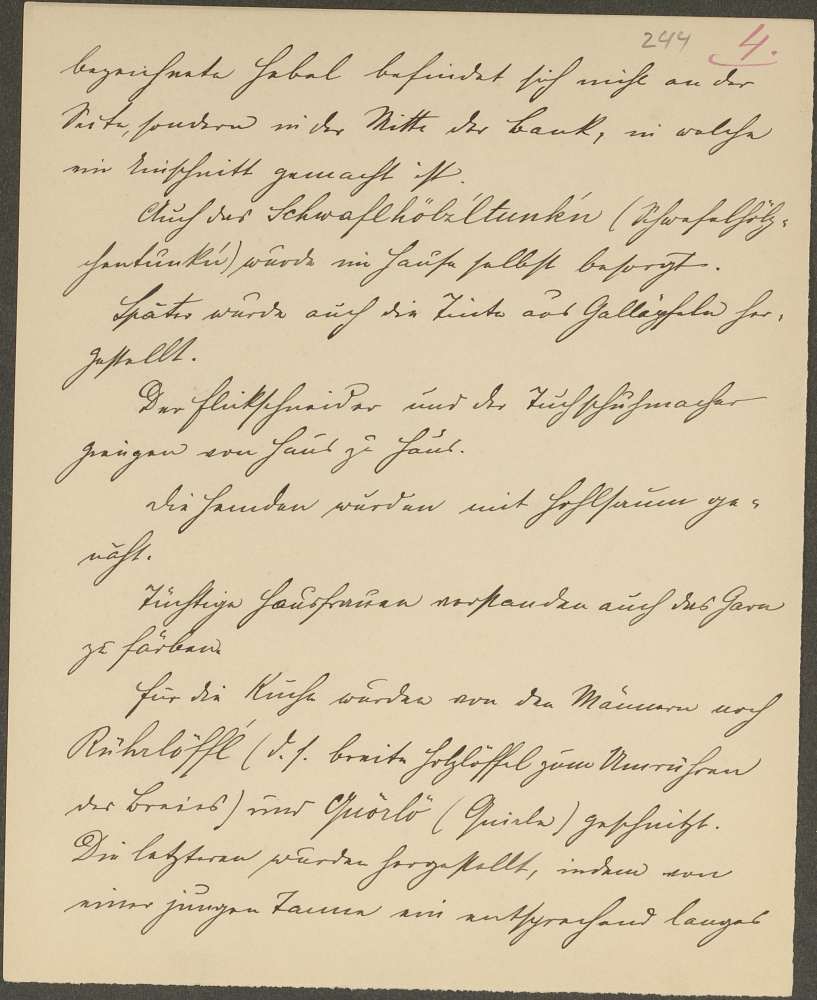 244 4.
bezeichnete Hebel befindet sich nicht an der
Seite, sondern in der Mitte der Bank, in welche
ein Einschnitt gemacht ist.
Auch das Schwaflhölzĺtunkń (Schwefelhölz-
chentunken) wurde im Hause selbst besorgt.
Später wurde auch die Tinte aus Galläpfeln her-
gestellt.
Der Flickschneider und der Tuchschuhmacher
giengen von Haus zu Haus.
Die Hemden wurden mit Hohlsaum ge-
näht.
Tüchtige Hausfrauen verstanden auch das Garn
zu färben.
Für die Küche wurden von den Männern noch
Rührlöffĺ (d. h. breite Holzlöffel zum Umrühren
des Breies) und Quörlö (Quirle) geschnitzt.
Die letzteren wurden hergestellt, indem von
einer jungen Tanne ein entsprechend langes